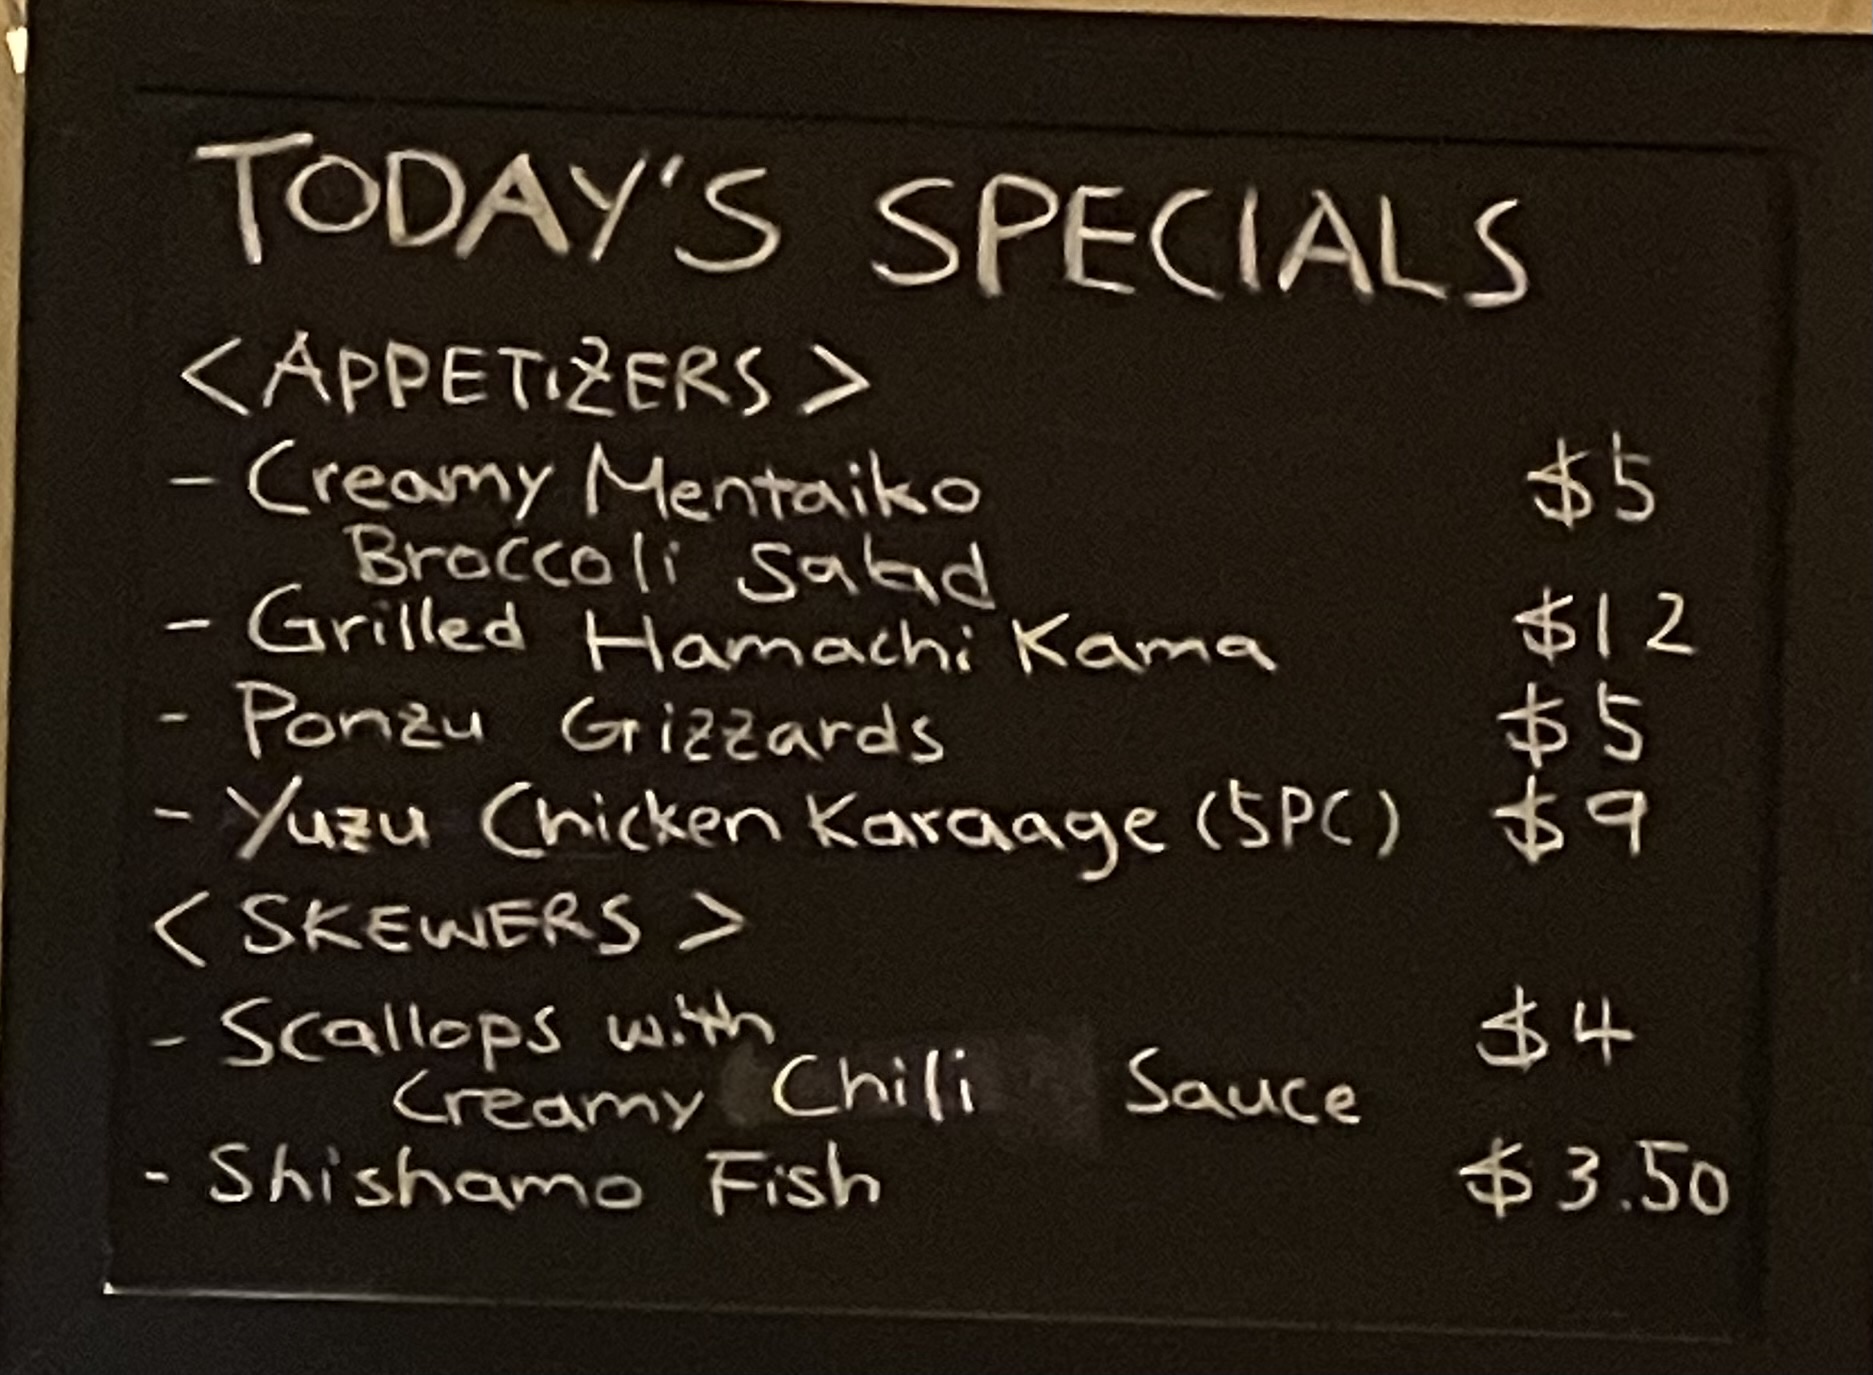 TODAY'S SPECIALS
<APPETIZERS>
- Creamy Mentaiko $5
Broccoli Salad
- Grilled Hamachi Kama $12
- Ponzu Gizzards $5
- Yuzu Chicken Karaage (5PC) $9
<SKEWERS>
- Scallops with $4
Creamy Chili Sauce
- Shishamo Fish $3.50